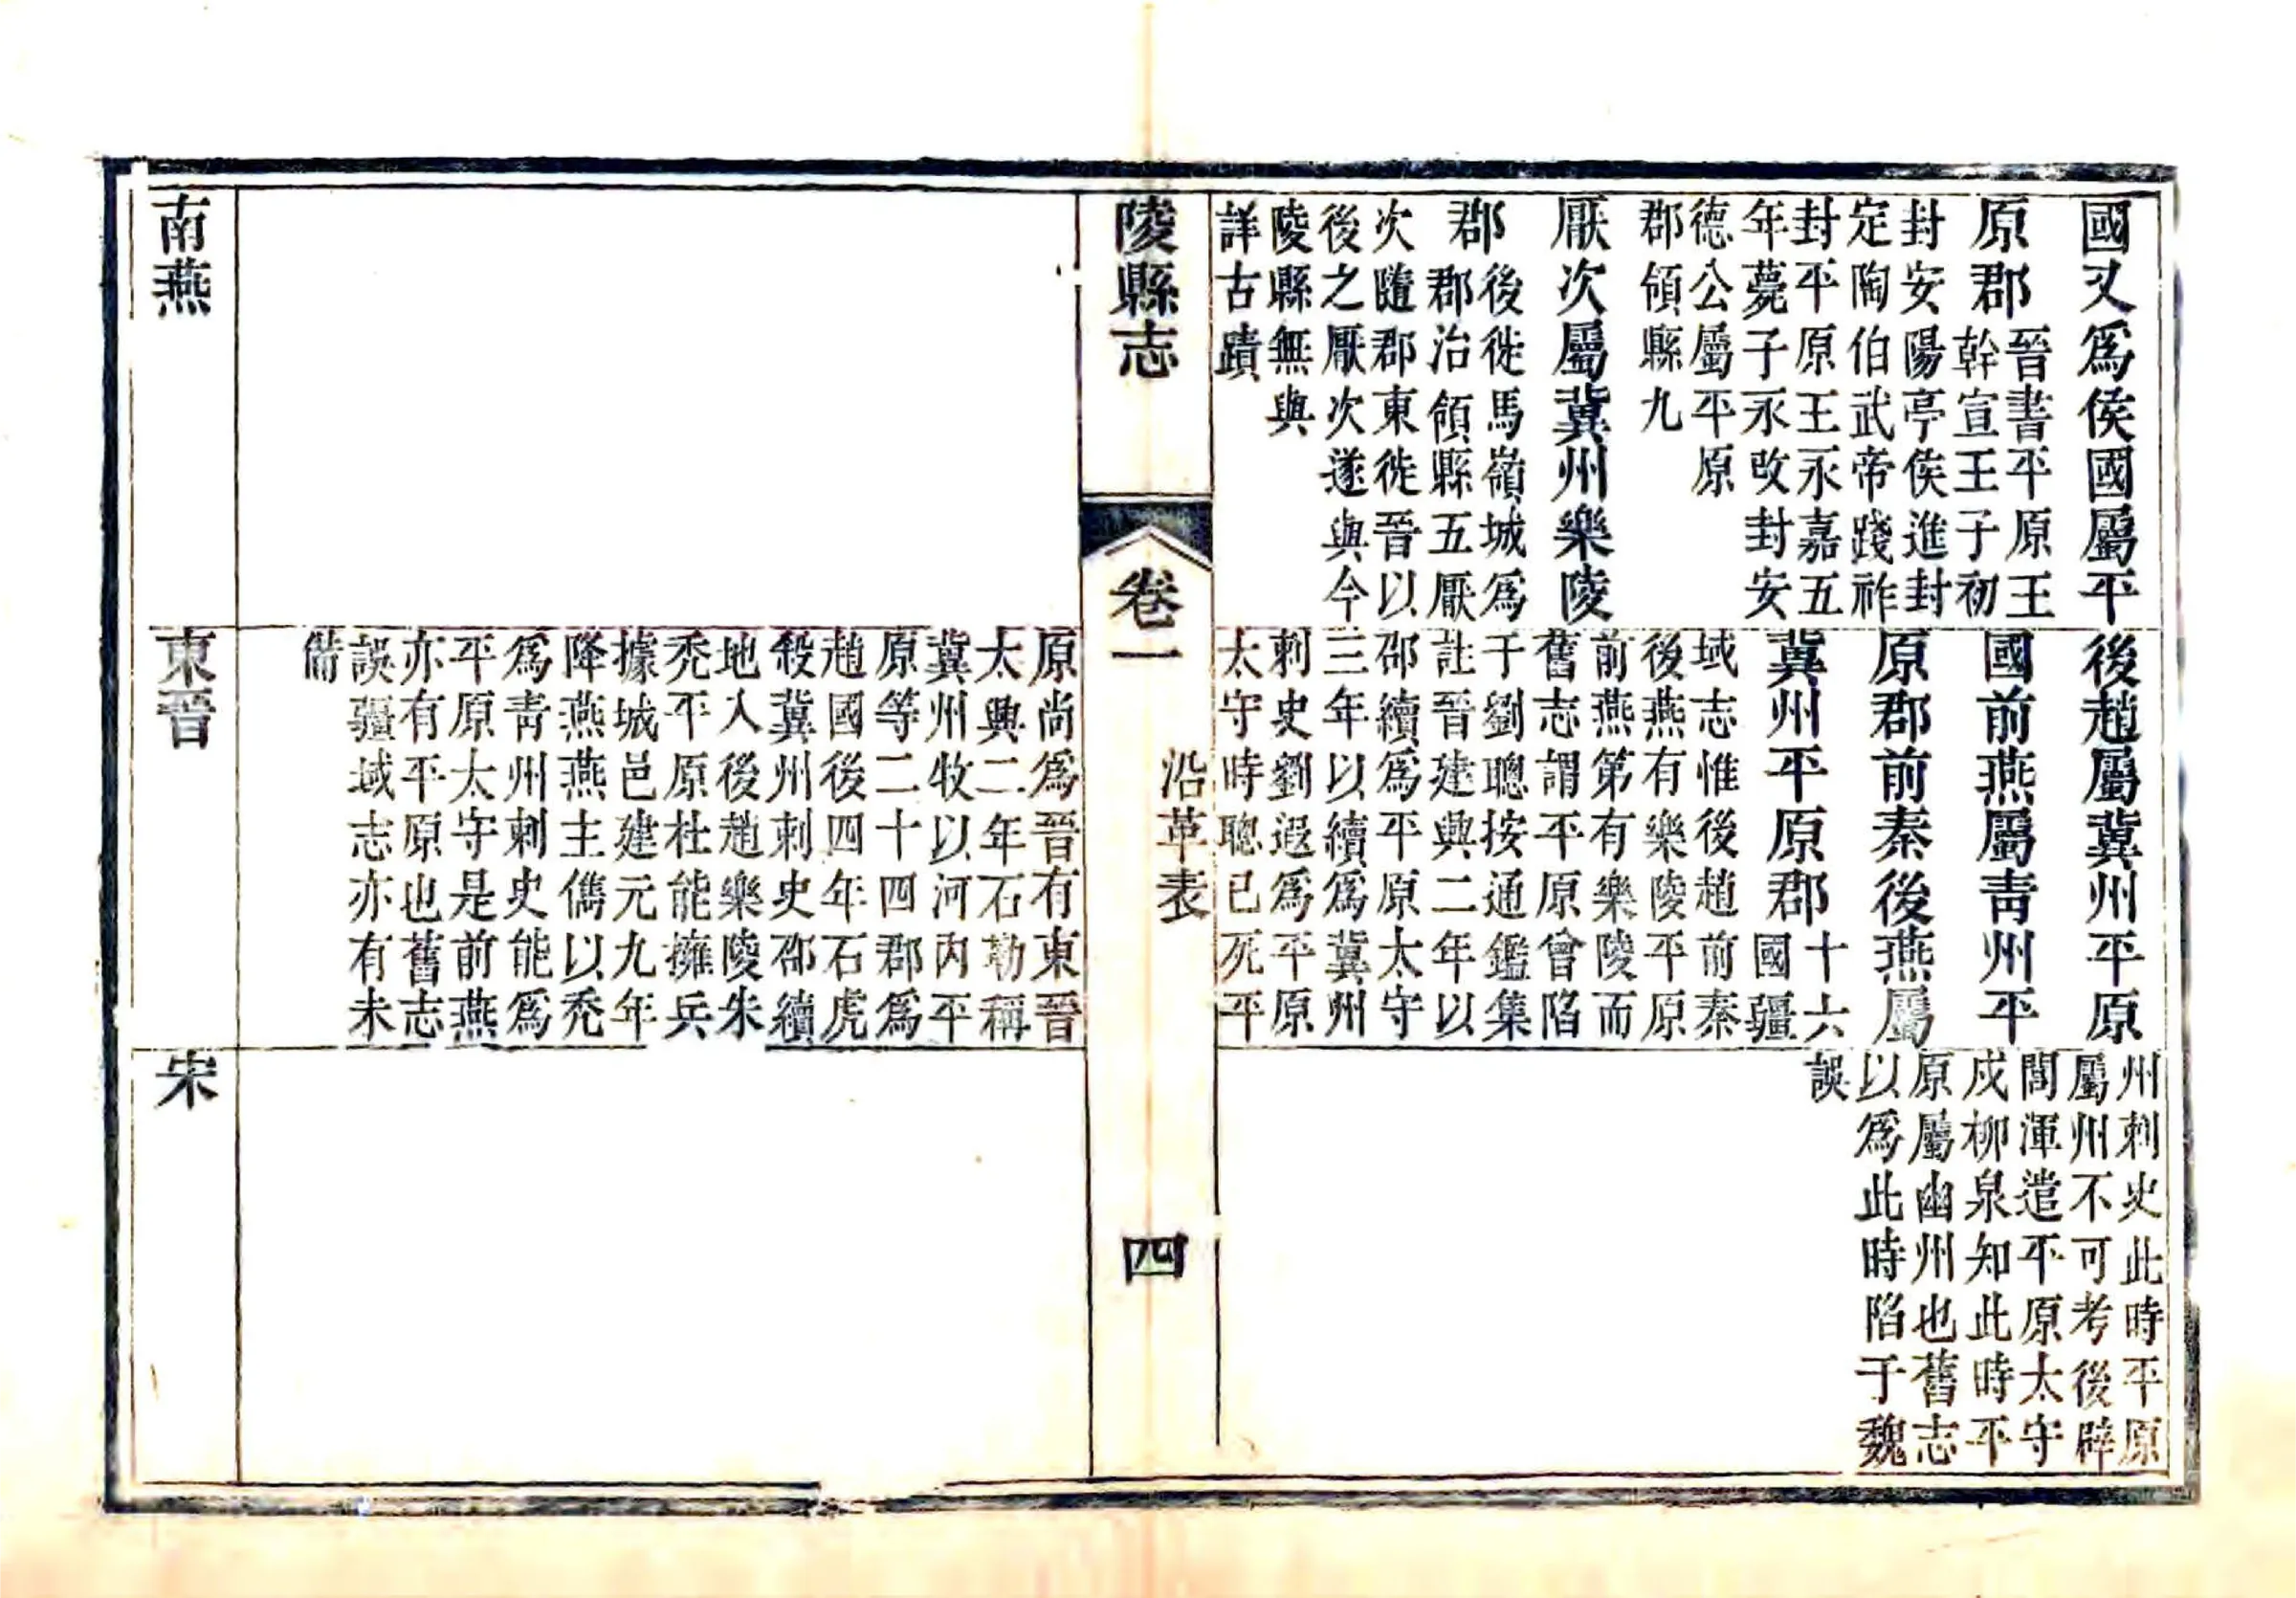 國又爲侯國屬平
原郡晉書平原王
幹宣王子初
封安陽亭侯進封
定陶伯武帝踐祚
封平原王永嘉五
年薨子永改封安
德公屬平原
郡領縣九
厭次屬冀州樂陵
郡後徙馬嶺城爲
郡治領縣五厭
次隨郡東徙晉以
後之厭次遂與今
陵縣無與
詳古蹟
後趙屬冀州平原
國前燕屬青州平
原郡前秦後燕屬
冀州平原郡十六
國疆
域志惟後趙前秦
後燕有樂陵平原
前燕第有樂陵而
舊志謂平原曾陷
于劉聰按通鑑集
註晉建興二年以
邵續爲平原太守
三年以續爲冀州
刺史劉遐爲平原
太守時聰已死平
州刺史此時平原
屬州不可考後辟
閭渾遣平原太守
戍柳泉知此時平
原屬幽州也舊志
以爲此時陷于魏
誤
陵縣志
卷一
沿革表
四
原尚爲晉有東晉
太興二年石勒稱
冀州牧以河內平
原等二十四郡爲
趙國後四年石虎
殺冀州刺史邵續
地入後趙樂陵朱
禿平原杜能擁兵
據城邑建元九年
降燕燕主儁以禿
爲青州刺史能爲
平原太守是前燕
亦有平原也舊志
誤疆域志亦有未
備
南燕
東晉
宋